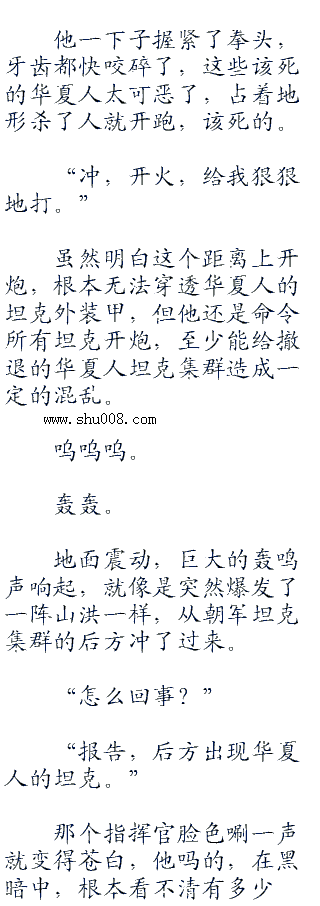 他一下子握紧了拳头，
牙齿都快咬碎了，这些该死
的华夏人太可恶了，占着地
形杀了人就开跑，该死的。
“冲，开火，给我狠狠
地打。”
虽然明白这个距离上开
炮，根本无法穿透华夏人的
坦克外装甲，但他还是命令
所有坦克开炮，至少能给撤
退的华夏人坦克集群造成一
定的混乱。
www.shu008.com
呜呜呜。
轰轰。
地面震动，巨大的轰鸣
声响起，就像是突然爆发了
一阵山洪一样，从朝军坦克
集群的后方冲了过来。
“怎么回事？”
“报告，后方出现华夏
人的坦克。”
那个指挥官脸色唰一声
就变得苍白，他吗的，在黑
暗中，根本看不清有多少